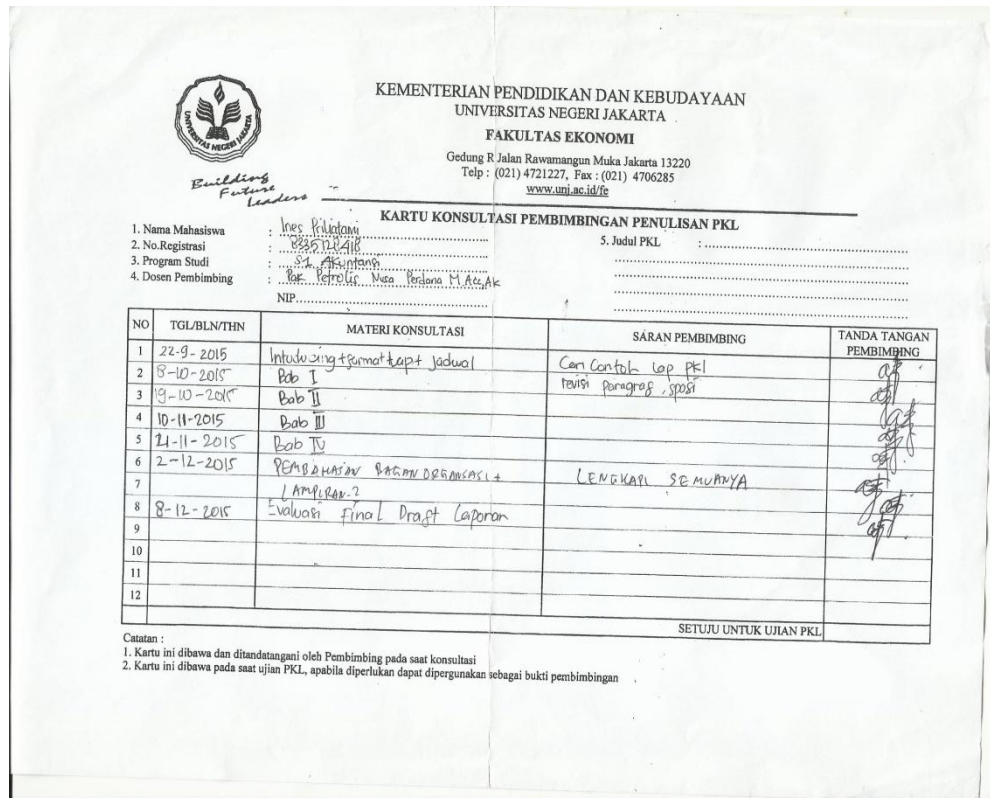 KEMENTERIAN PENDIDIKAN DAN KEBUDAYAAN
UNIVERSITAS NEGERI JAKARTA
FAKULTAS EKONOMI
Gedung R Jalan Rawamangun Muka Jakarta 13220
Telp : (021) 4721227, Fax : (021) 4706285
www.unj.ac.id/fe
UNIVERSITAS NEGERI JAKARTA
Building
Future
Leaders
KARTU KONSULTASI PEMBIMBINGAN PENULISAN PKL
1. Nama Mahasiswa : Ines Priliatami
2. No.Registrasi : 8335128418
3. Program Studi : S1 Akuntansi
4. Dosen Pembimbing : Pak Petrolis Nusa Perdana M.Acc,Ak
NIP
5. Judul PKL :
NO TGL/BLN/THN MATERI KONSULTASI SARAN PEMBIMBING TANDA TANGAN PEMBIMBING
1 22-9-2015 jadwal Cari Contoh Lap PKL
2 8-10-2015 Bab I revisi paragraf, spasi
3 19-10-2015 Bab II
4 10-11-2015 Bab III
5 21-11-2015 Bab IV
6 2-12-2015 PEMBAHASAN BAGAN ORGANISASI + LENGKAPI SEMUANYA
7 LAMPIRAN-2
8 8-12-2015 Evaluasi Final Draft Laporan
9
10
11
12
SETUJU UNTUK UJIAN PKL
Catatan :
1. Kartu ini dibawa dan ditandatangani oleh Pembimbing pada saat konsultasi
2. Kartu ini dibawa pada saat ujian PKL, apabila diperlukan dapat dipergunakan sebagai bukti pembimbingan